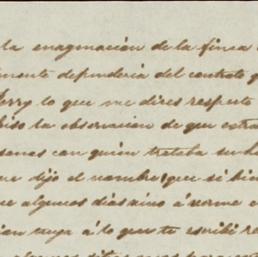 la enagenación de la finca
mente dependeria del contrato q
Jerry lo que me dices respecto
hiso la observacion de que estra
sonas con quien trataba su h
me dijo el nombre, que si bien
que algunos dias vino á verme
suya á lo que te escribí re
algunos dias